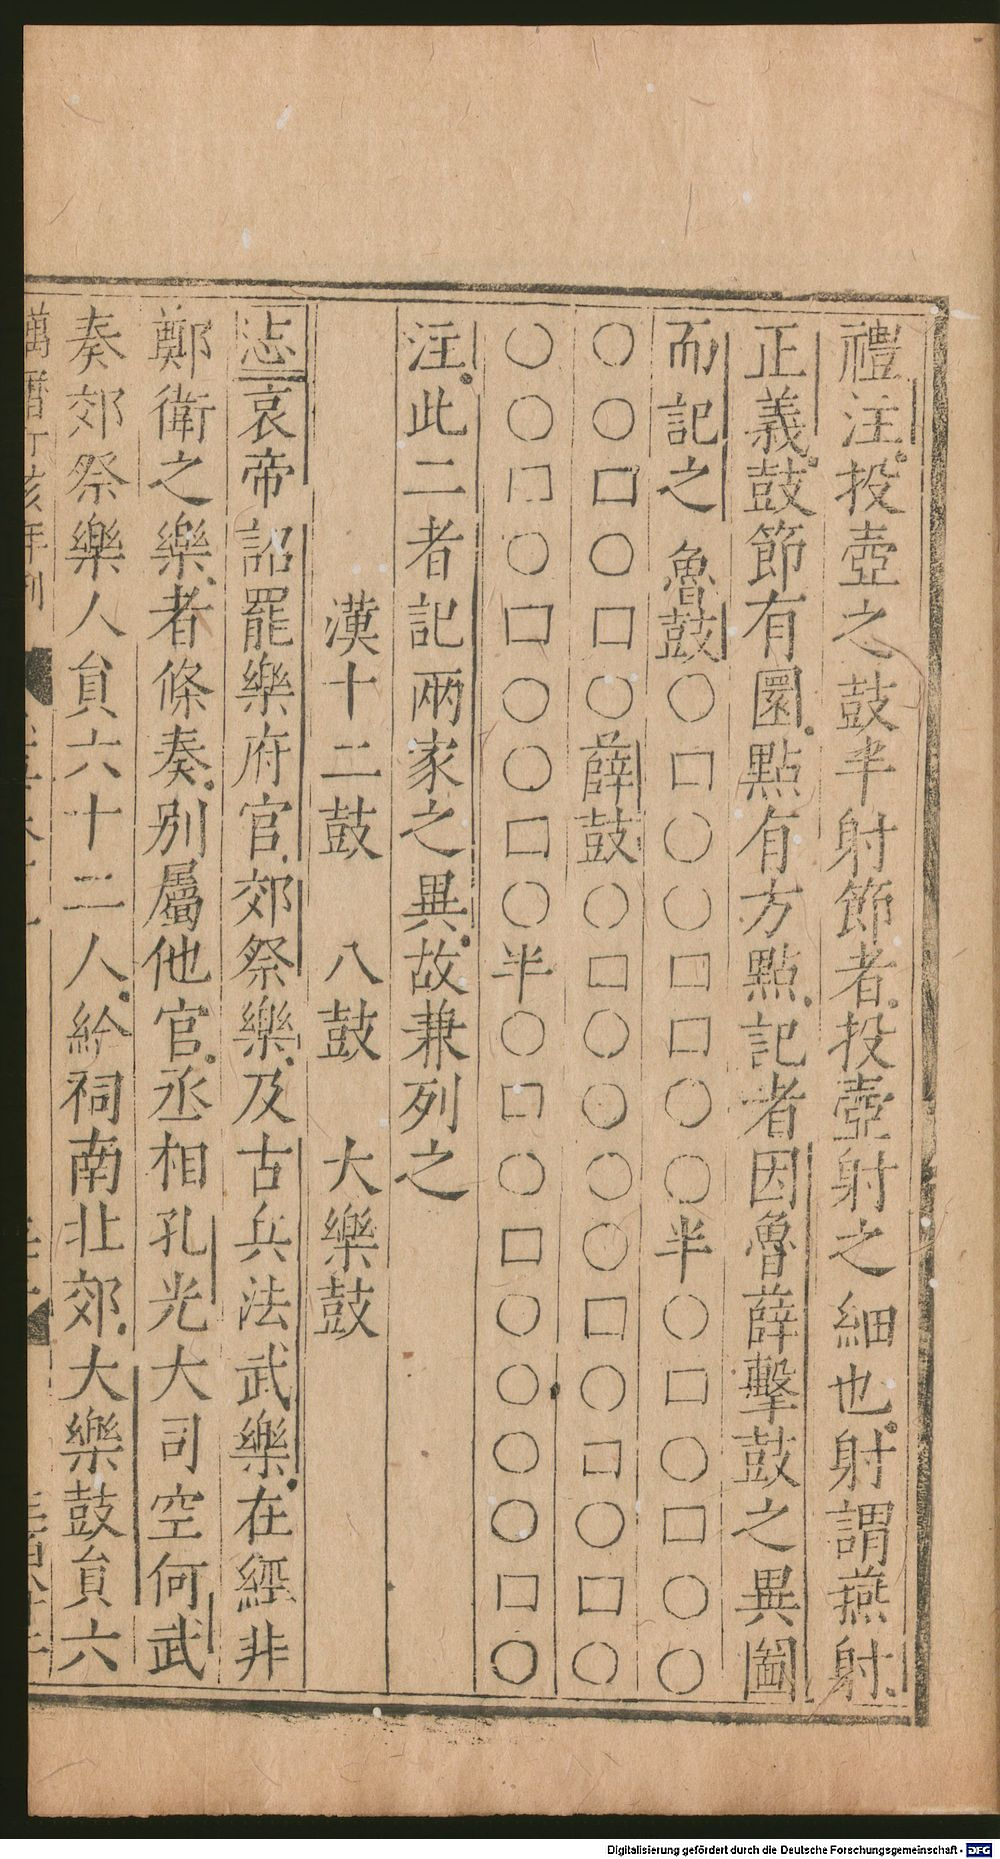 禮注投壺之鼓半射節者投壺射之細也射謂燕射
正義鼓節有圜點有方點記者因魯薛擊鼓之異圖
而記之 魯鼓○□○○□□○○半○□○□○○
○○□○□○薛鼓○□○○○○□○□○□○
○○□○□○○□○半○□○□○○○○□○
注此二者記兩家之異故兼列之
漢十二鼓 八鼓 大樂鼓
志哀帝詔罷樂府官郊祭樂及古兵法武樂在經非
鄭衛之樂者條奏別屬他官丞相孔光大司空何武
奏郊祭樂人員六十二人給祠南北郊大樂鼓員六
萬曆丁亥年刋
Digitalisierung gefördert durch die Deutsche Forschungsgemeinschaft - DFG